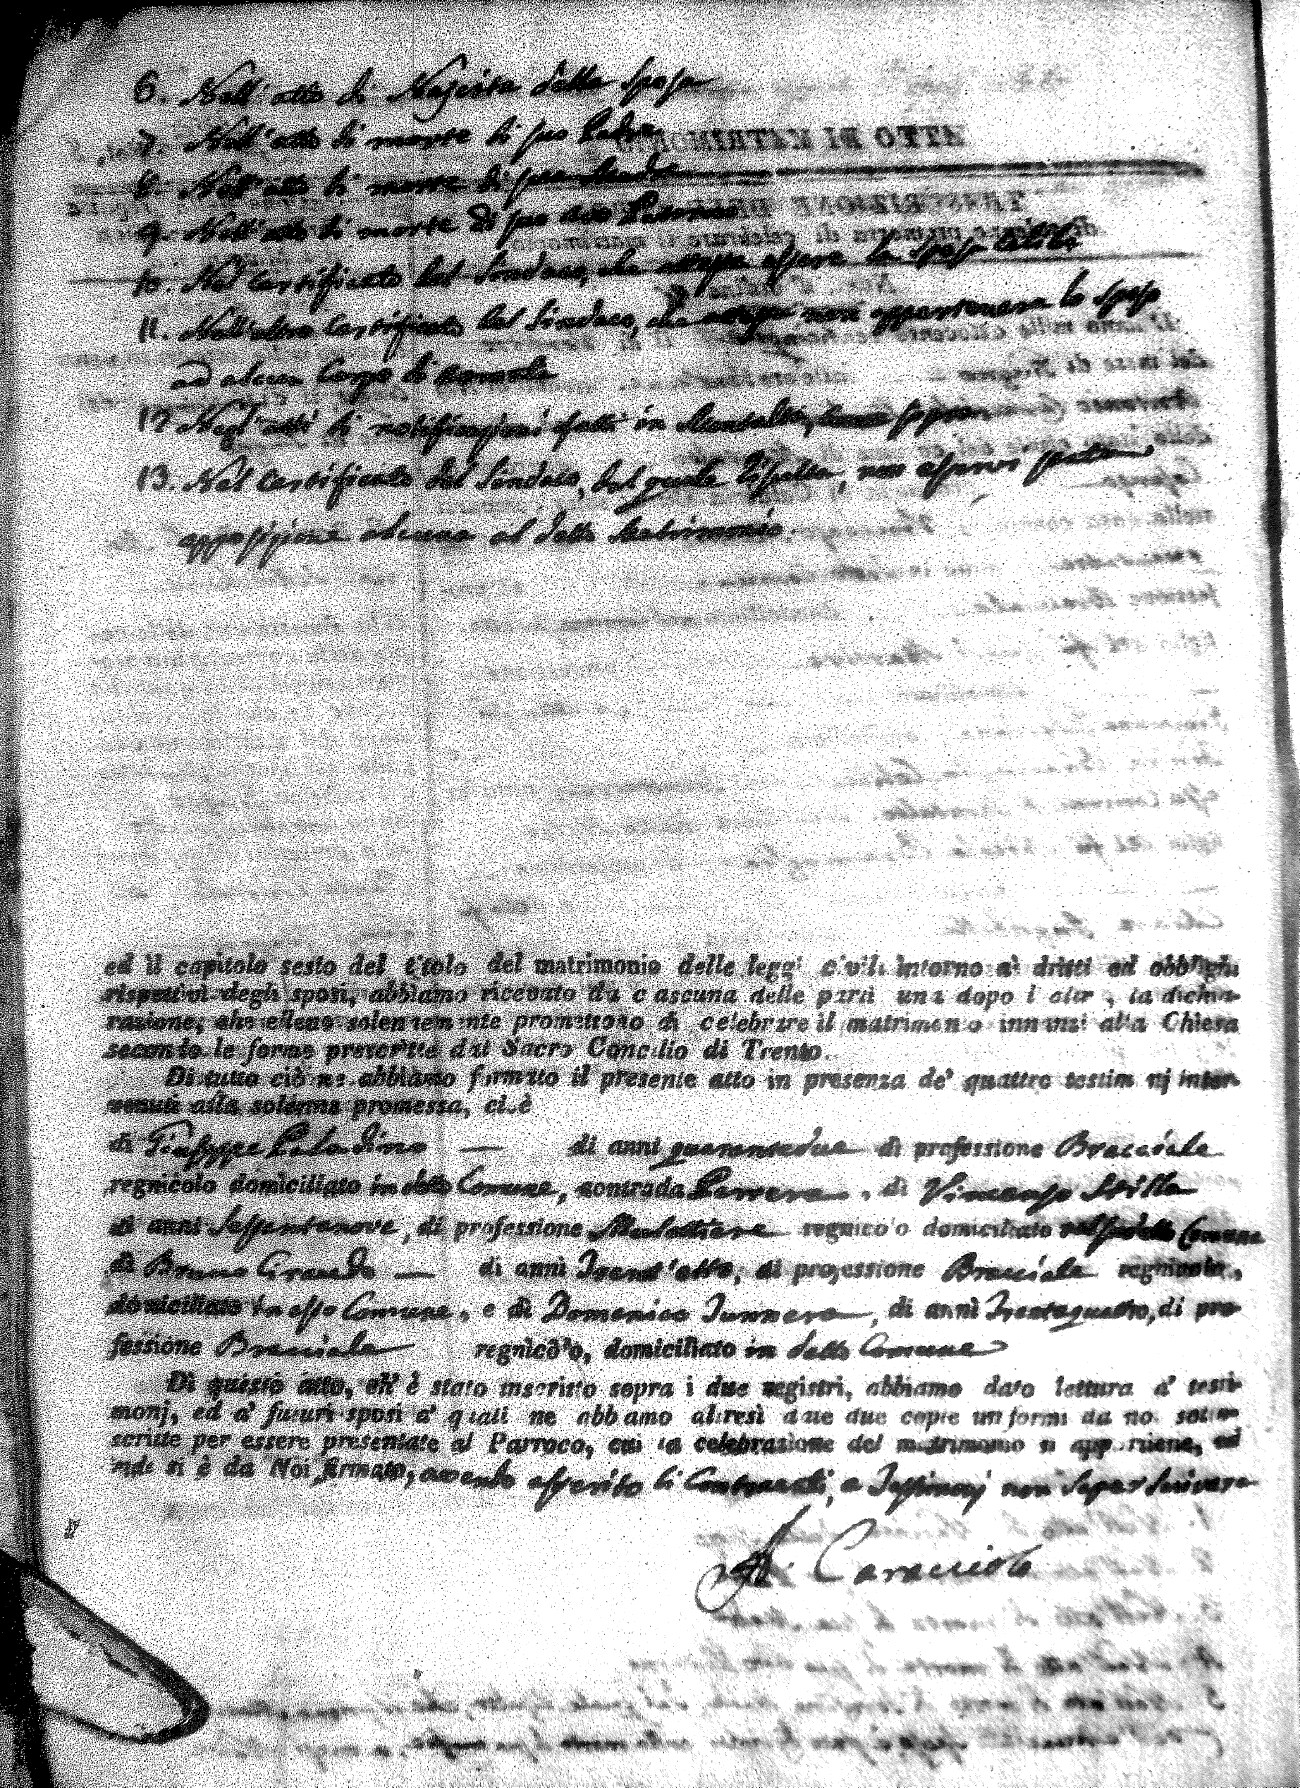 6. Nell'atto di Nascita della Sposa
7. Nell'atto di morte di suo Padre
8. Nell'atto di morte di sua Madre
9. Nell'atto di morte di suo Avo Paterno
10. Nel Certificato del Sindaco, che essere la sposa
11. Nell'altro Certificato del Sindaco, che non appartenere lo sposo
ad alcun Corpo di
12. Negl'atti di notificazioni fatti in Montalto,
13. Nel Certificato del Sindaco, dal quale risulta, non esservi stata
opposizione alcuna al detto Matrimonio.
ed il capitolo sesto del titolo del matrimonio delle leggi civili intorno ai dritti ed obblighi
rispettivi degli sposi, abbiamo ricevuto da ciascuna delle parti una dopo l'altra, la dichia-
razione, che elleno solennemente promettono di celebrare il matrimonio innanzi alla Chiesa
secondo le forme prescritte dal Sacro Concilio di Trento.
Di tutto ciò ne abbiamo firmato il presente atto in presenza de' quattro testimonj inter-
venuti alla solenne promessa, cioè
di Giuseppe Paladino — di anni quarantadue di professione Bracciale
regnicolo domiciliato in detto Comune, contrada , di Vincenzo Stilla
di anni Sessantanove, di professione Mulattiere regnicolo domiciliato nel suddetto Comune
di Bruno Grande — di anni Trent'otto, di professione Bracciale regnicolo,
domiciliato in esso Comune, e di Domenico , di anni Trentaquattro, di pro-
fessione Bracciale regnicolo, domiciliato in detto Comune
Di questo atto, ch'è stato inscritto sopra i due registri, abbiamo dato lettura a' testi-
monj, ed a' futuri sposi a' quali ne abbiamo altresì date due copie uniformi da noi sotto-
scritte per essere presentate al Parroco, cui la celebrazione del matrimonio si appartiene, ed
indi si è da Noi firmato, avendo asserito li Contraenti, e Testimonj non saper scrivere
Caracciolo